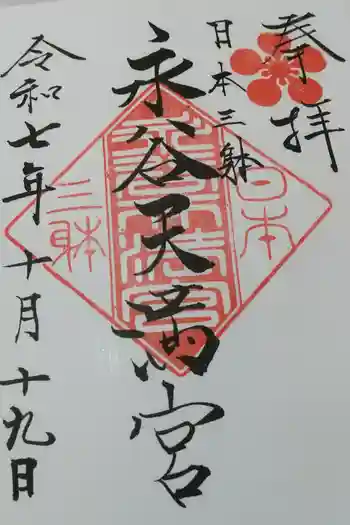 奉拝
日本三躰
永谷天満宮
令和七年十月十九日
日本
三躰